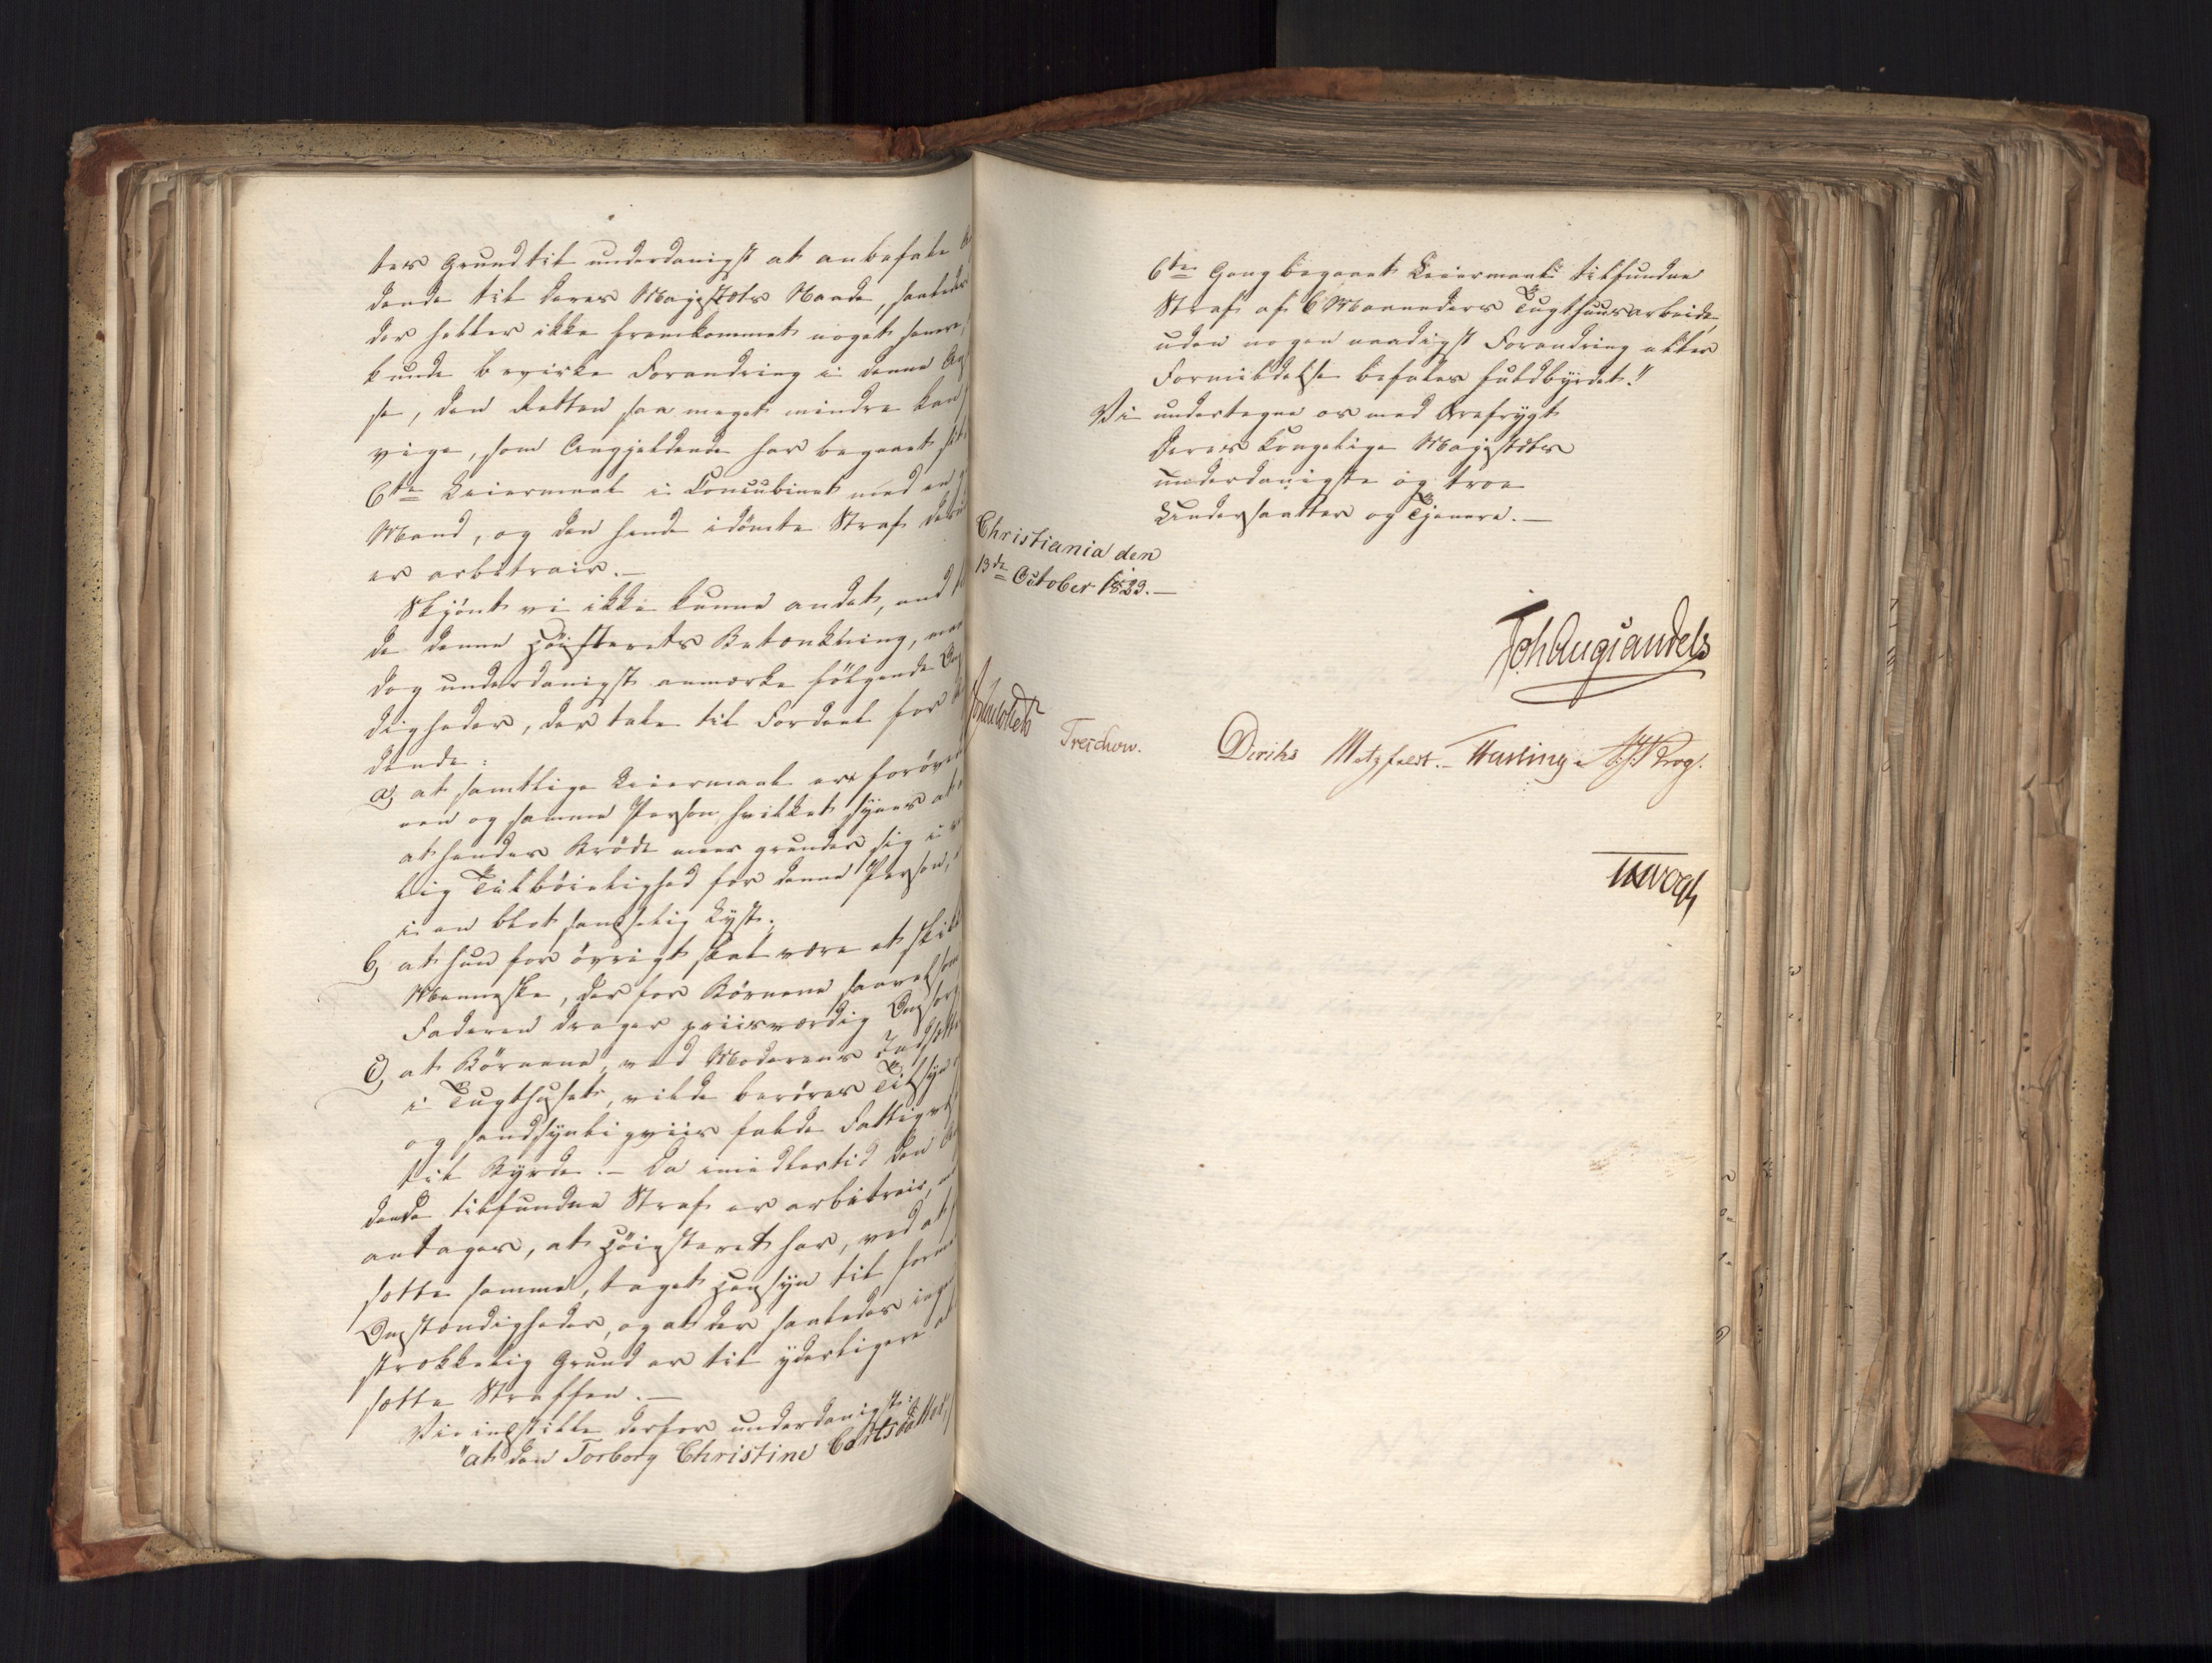 ter Grund til underdanigst at anbefale
dende til Deres Majestæts Naade, saaledes
der heller ikke fremkommet noget senere,
kunde bevirke Forandring i denne
se, den Retten saa meget mindre kan
vige, som Angjeldende har begaaet sit
6te Leiermaal i Concubinat med en
Mand, og den hende idömte Straf
er arbitrair.—
Skjönt vi ikke kunne andet, end
de denne Höiesterets Betænkning, maae
dog underdanigst anmærke fölgende
digheder, der tale til Fordeel for
dende:
a, at samtlige Leiermaal ere forövede
een og samme Person, hvilket synes at
at hendes Bröde meer grunder sig i
lig Tilböielighed for denne Person,
i en blot sandselig Lyst;
b, at hun for övrigt skal være et skik
Menneske, der for Börnene saavelsom
Faderen drager priisværdig Omsorg
c, at Börnene, ved Moderens Indsætt
i Tugthuset, vilde beröves Tilsyn
og sandsynligviis falde Fattigv
til Byrde.— Da imidlertid den
dende tilfundne Straf er arbitrair,
antages, at Höiesteret har, ved at
sætte samme, taget Hensyn til
Omstændigheder, og at der saaledes
strækkelig Grund er til yderligere
sætte Straffen.—
Vi indstille derfor underdanigst:
"at den Torborg Christine Carlsdatter,
6te Gang begaaet Leiermaal tilfundne
Straf af 6 Maaneders Tugthuusarbeide,
uden nogen naadigst Forandring eller
Formildelse befales fuldbyrdet."
Vi undertegne os med Ærefrygt
Deres Kongelige Majestæts
underdanigste og troe
Undersaatter og Tjenere.—
Christiania den
13de October 1823.—
Joh Aug Sandels
Treschow. Diriks Motzfeldt. Fasting
Krog.
Vogt